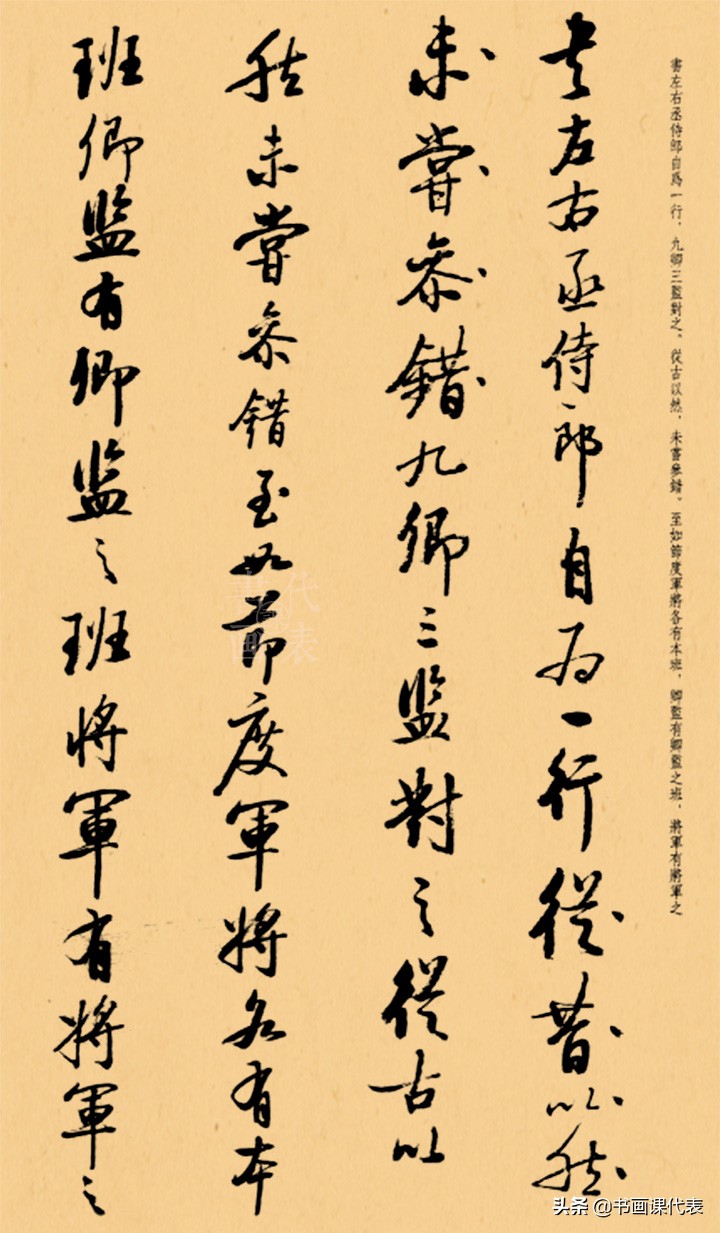 書左右丞侍郎自爲一行，九卿三監對之。從古以然，未嘗參錯。至如節度軍將各有本班，卿監有卿監之班，將軍有將軍之
書左右丞侍郎自为一行從昔以然
未嘗參錯九卿三监對之從古以
然未嘗參錯至如節度軍將各有本
班卿监有卿监之班將軍有將軍之
書画
代表
头条 @书画课代表